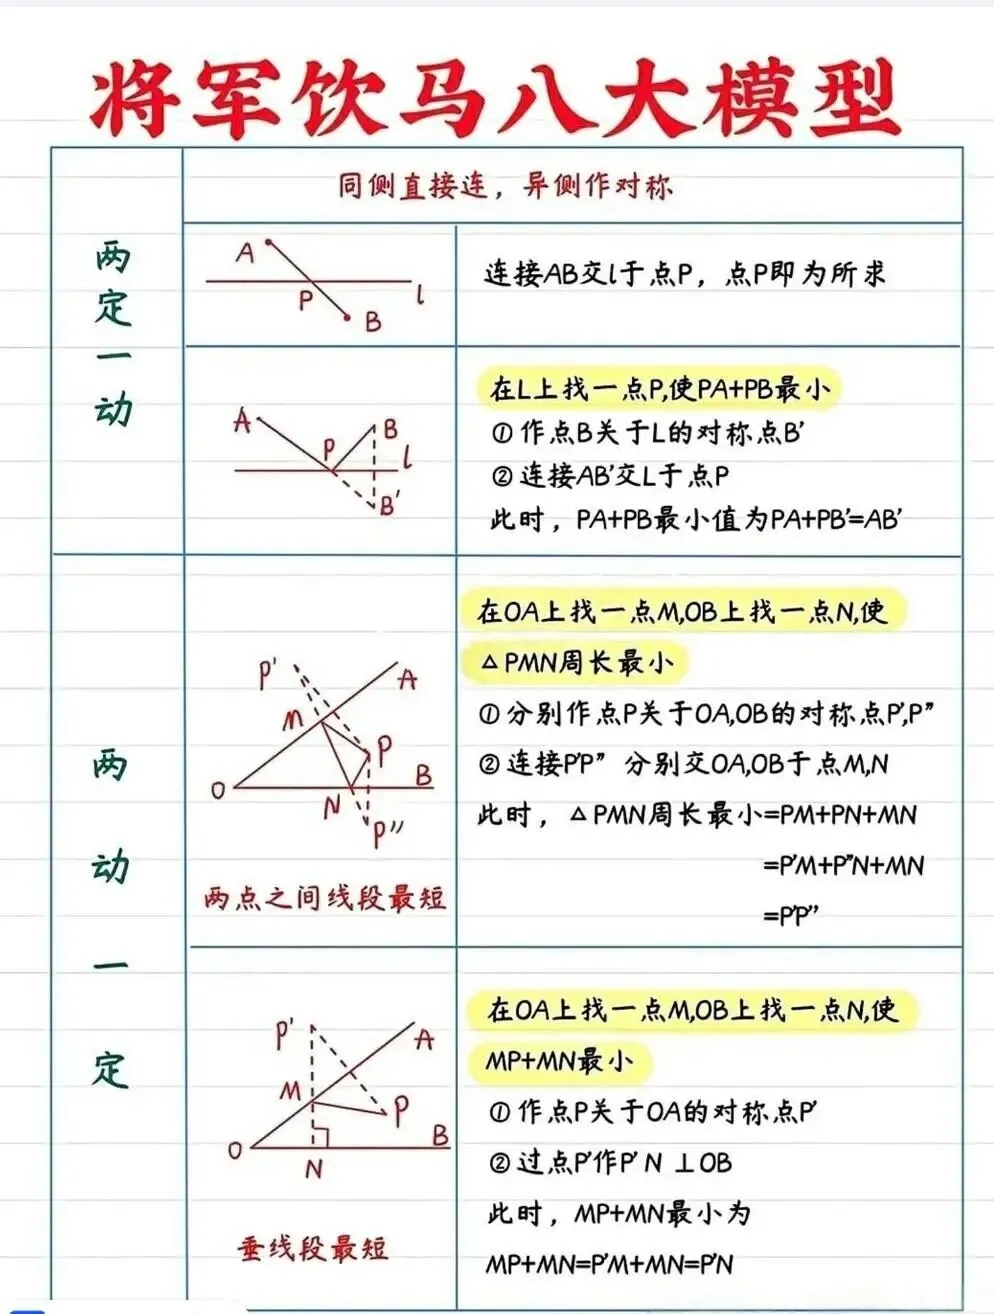 将军饮马八大模型
同侧直接连，异侧作对称
两定一动
A
P
l
B
连接AB交l于点P，点P即为所求
A
P
B
l
B'
在L上找一点P,使PA+PB最小
①作点B关于L的对称点B'
②连接AB'交L于点P
此时，PA+PB最小值为PA+PB'=AB'
两动一定
P'
A
M
P
O
B
N
P"
两点之间线段最短
在OA上找一点M,OB上找一点N,使
△PMN周长最小
①分别作点P关于OA,OB的对称点P',P"
②连接P'P" 分别交OA,OB于点M,N
此时，△PMN周长最小=PM+PN+MN
=P'M+P"N+MN
=P'P"
P'
A
M
P
O
B
N
垂线段最短
在OA上找一点M,OB上找一点N,使
MP+MN最小
①作点P关于OA的对称点P'
②过点P'作P'N⊥OB
此时，MP+MN最小为
MP+MN=P'M+MN=P'N